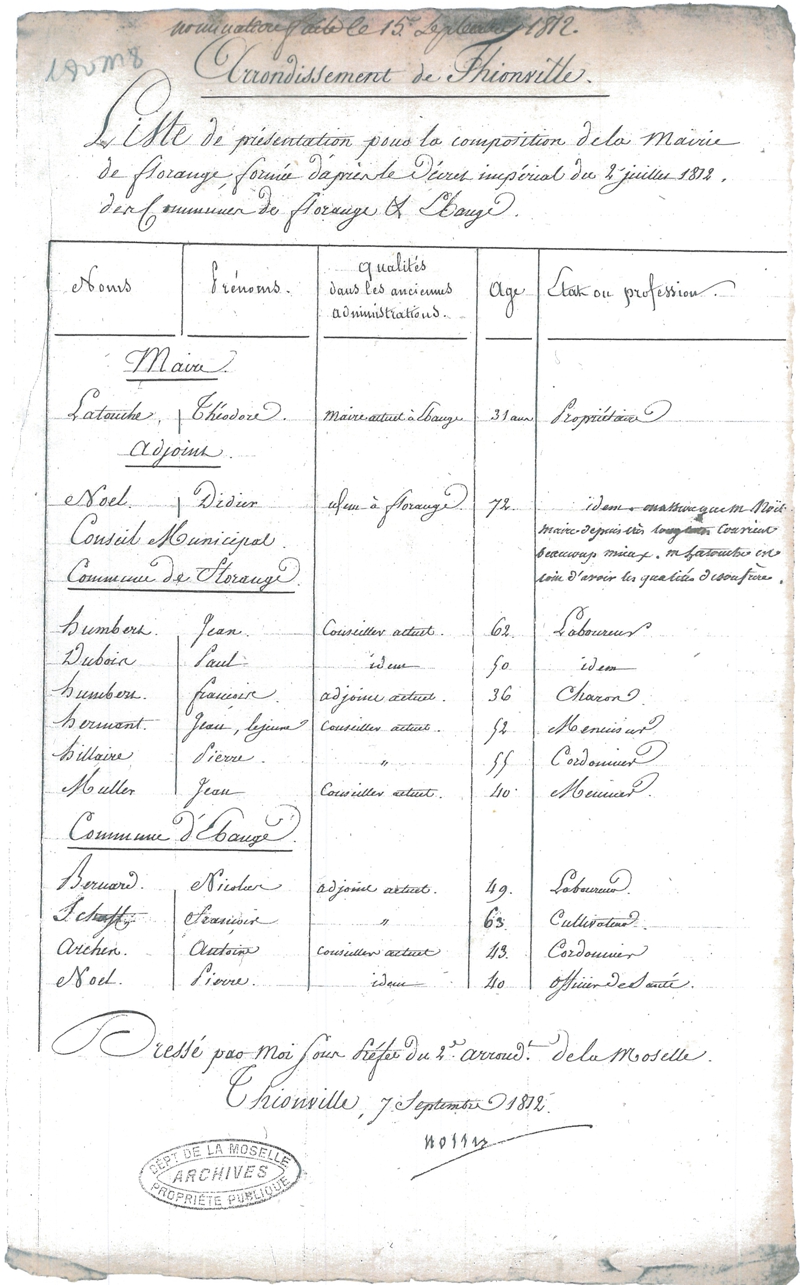 nomination faite le 15 Septembre 1812.
190M8
Arrondissement de Thionville.
Liste de présentation pour la composition de la Mairie
de florange formée d'après le Décret impérial du 2 juillet 1812.
des Communes de florange & Ebange.
Noms Prénoms. qualités dans les anciennes administrations. Age Etat ou profession.
Maire
Latouche, Théodore. Maire actuel à Ebange 31 ans Propriétaire
Adjoint
Noel. Didier idem à florange 72 idem. on assure que M Noël
maire depuis très longtems convient
beaucoup mieux. M Latouche est
loin d'avoir les qualités de son frère.
Conseil Municipal.
Commune de Florange
humbert. Jean Conseiller actuel. 62 Laboureur
Dubois Paul idem 50 idem
humbert. francois. adjoint actuel. 36 Charon
hermant. Jean, lejeune Conseiller actuel. 52 Menuisier
hillaire Pierre. " 55 Cordonnier
Muller Jean Conseiller actuel. 40 Meunier.
Commune d'Ebange
Bernard. Nicolas adjoint actuel. 49. Laboureur
Francois " 63 Cultivateur
Archen. Antoine conseiller actuel 43. Cordonnier
Noel. Pierre. idem 40 officier de Santé.
Dressé par Moi Sous Préfet du 2e arrondt. de la Moselle.
Thionville, 7 Septembre 1812.
DÉPT DE LA MOSELLE
ARCHIVES
PROPRIÉTÉ PUBLIQUE